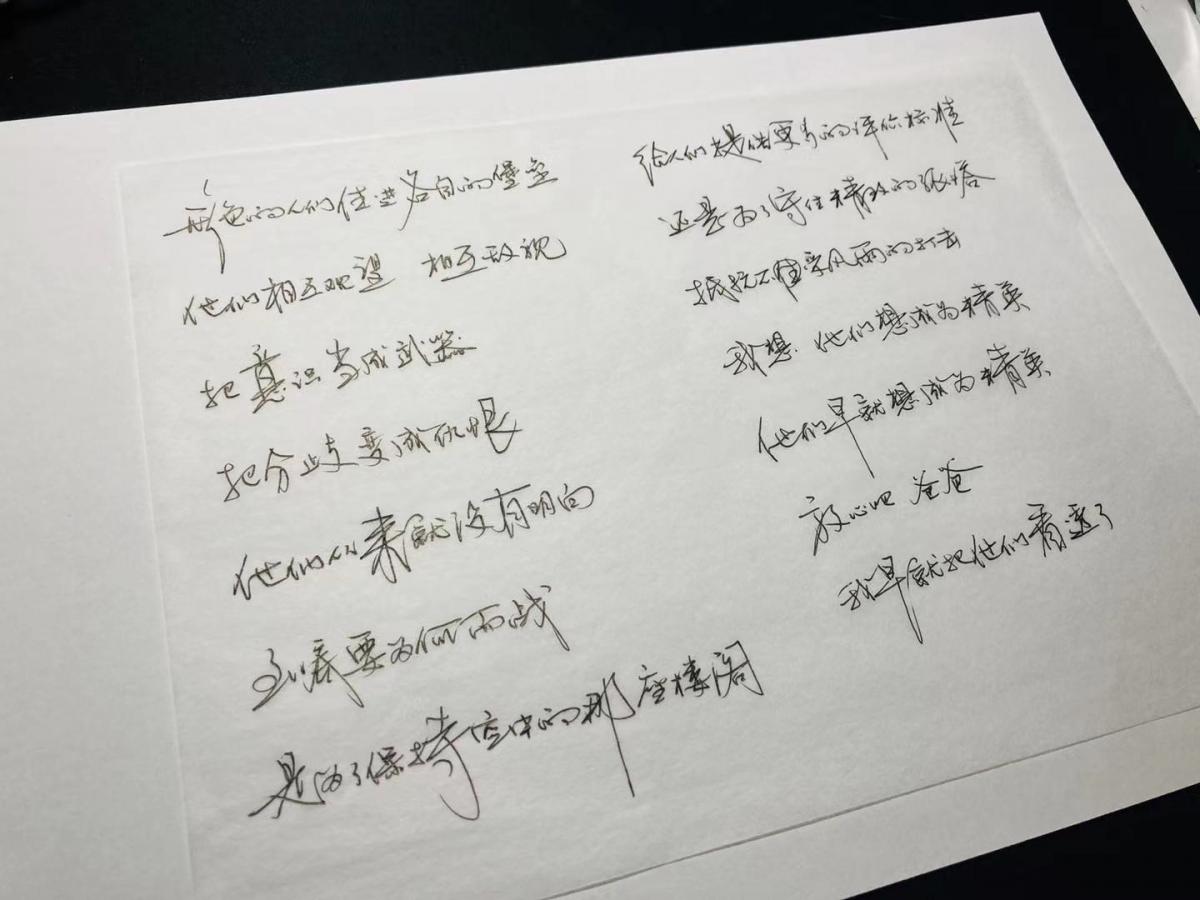 形色的人们住进各自的堡垒
他们相互观望 相互敌视
把意识当成武器
把分歧变成仇恨
他们从来就没有明白
到底要为何而战
是为了保持空中的那座楼阁
给人们提供更多的评价标准
还是为了守住精致的张
抵抗不住风雨的打击
我想 他们想成为精英
他们早就想成为精英
放心吧 爸爸
我早就把他们看透了